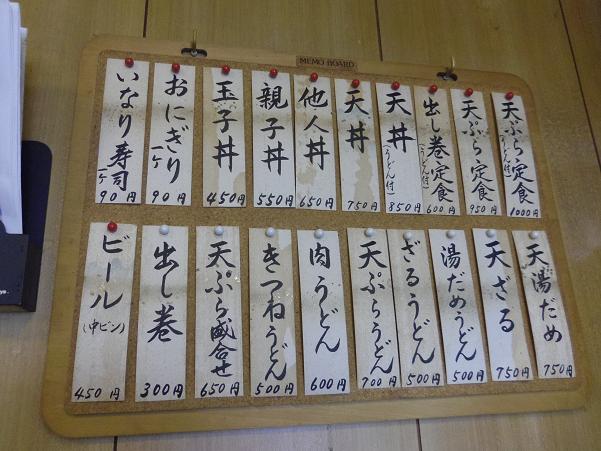 MEMO BOARD
天ぷら定食
(うどん付)
1000円
天ぷら定食
950円
出し巻定食
(うどん付)
600円
天丼
(うどん付)
850円
天丼
750円
他人丼
650円
親子丼
550円
玉子丼
450円
おにぎり
一ケ
90円
いなり寿司
一ケ
90円
天湯だめ
750円
天ざる
750円
湯だめうどん
500円
ざるうどん
500円
天ぷらうどん
700円
肉うどん
600円
きつねうどん
500円
天ぷら盛合せ
650円
出し巻
300円
ビール
(中ビン)
450円